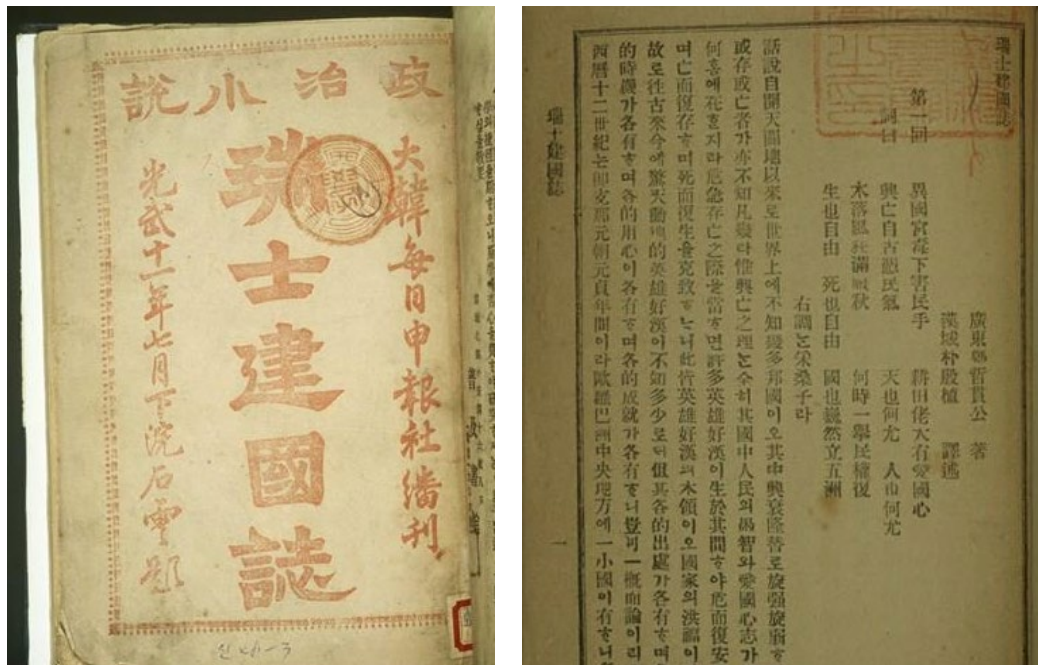 政治小說
大韓每日申報社繙刊
瑞士建國誌
光武十一年七月下浣石雲題
瑞士建國誌
廣東鄭哲貫公 著
漢城朴殷植 譯述
第一回 異國官毒下害民手 耕田佬大有愛國心
詞曰 興亡自古憑民氣 天也何尤 人也何尤
木落風淒滿眼秋 何時一擧民權復
生也自由 死也自由 國也巍然立五洲
右調는采桑子라
話說自開天闢地以來로世界上에不知幾多邦國이오其中興衰隆替로旋强旋弱ᄒ
或存或亡者가亦不知凡幾라惟興亡之理는全히其國中人民의愚智와愛國心志가
何흠에在ᄒ지라危急存亡之際를當ᄒ면許多英雄好漢이生於其間ᄒ야危而復安
며亡而復存ᄒ며死而復生을克致ᄒᄂ니此皆英雄好漢의本領이오國家의洪福이
故로往古來今에驚天動地的英雄好漢이不知多少로ᄃᆡ但其各的出處가各有ᄒ며
的時機가各有ᄒ며各的用心이各有ᄒ며各的成就가各有ᄒ니豈可一概而論이리
西曆十二世紀는卽支那元朝元貞年間이라歐羅巴洲中央地方에一小國이有ᄒ니
瑞士建國誌
一